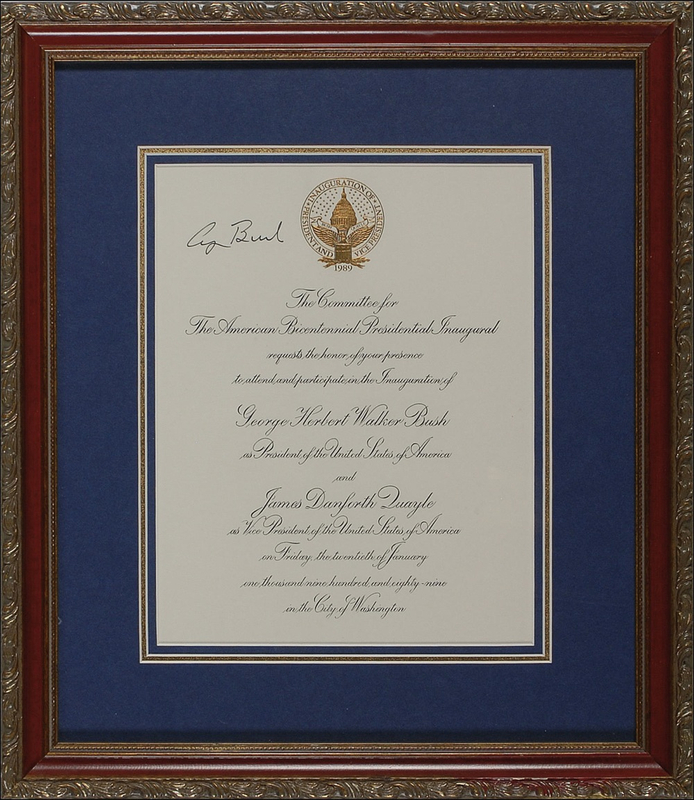 INAUGURATION OF PRESIDENT AND VICE PRESIDENT
1989
Bush
The Committee for
The American Bicentennial Presidential Inaugural
requests the honor of your presence
to attend and participate in the Inauguration of
George Herbert Walker Bush
as President of the United States of America
and
James Danforth Quayle
as Vice President of the United States of America
on Friday, the twentieth of January
one thousand nine hundred and eighty-nine
in the City of Washington